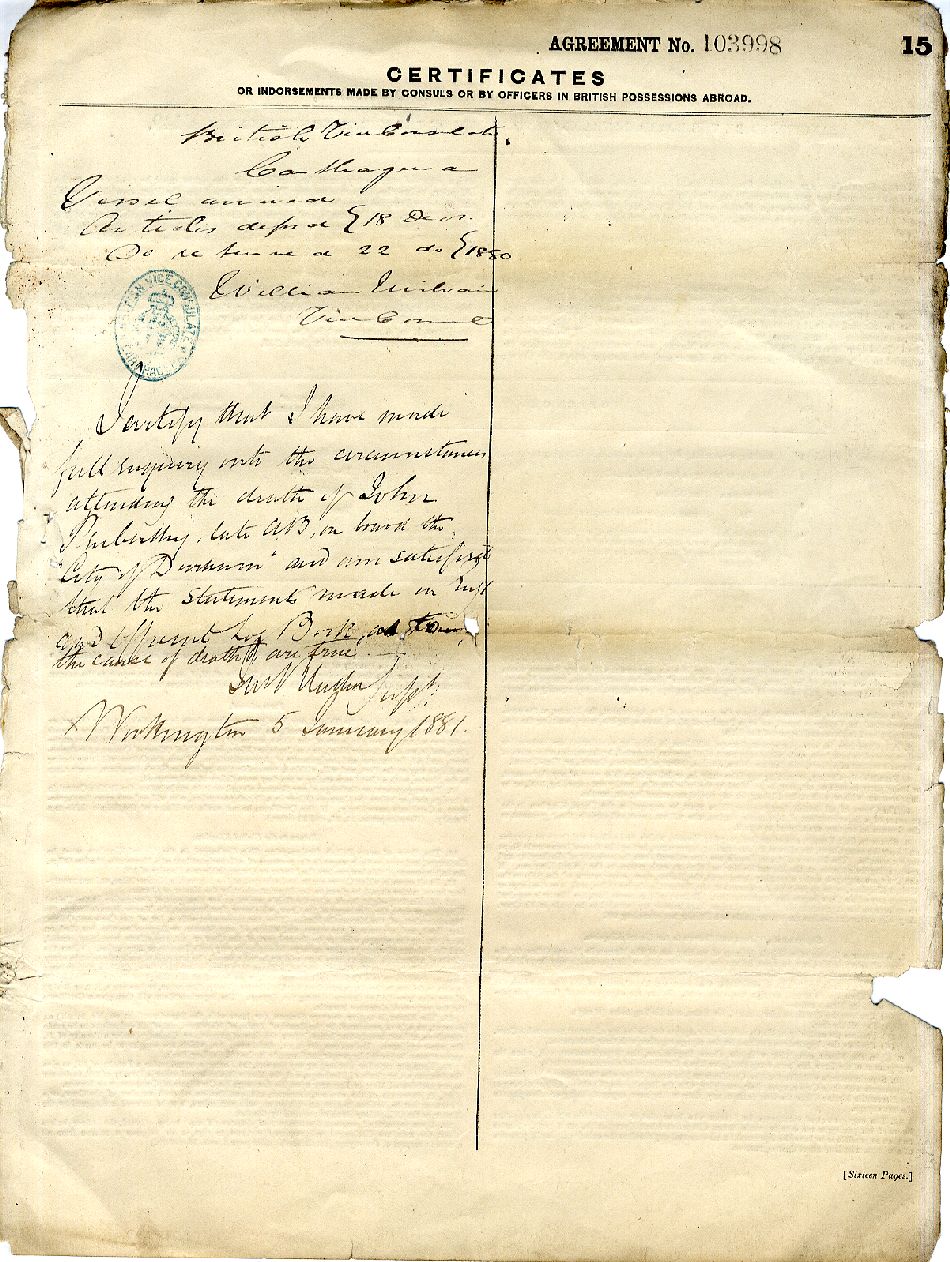 AGREEMENT No. 103998
15
CERTIFICATES
OR INDORSEMENTS MADE BY CONSULS OR BY OFFICERS IN BRITISH POSSESSIONS ABROAD.
British Vice Consulate
Carthagena
Vessel arrived
Articles deposd { 18 Decr.
Do returned 22 do { 1880
William
Vice Consul
VICE CONSULATE
I certify that I have made
full enquiry into the circumstances
attending the death of John
late AB, on board the
"City of " and am satisfied
that the statements made in
and Official Log Book, as to
the cause of death are true
Supt
Workington 5 January 1881.
[Sixteen Pages.]